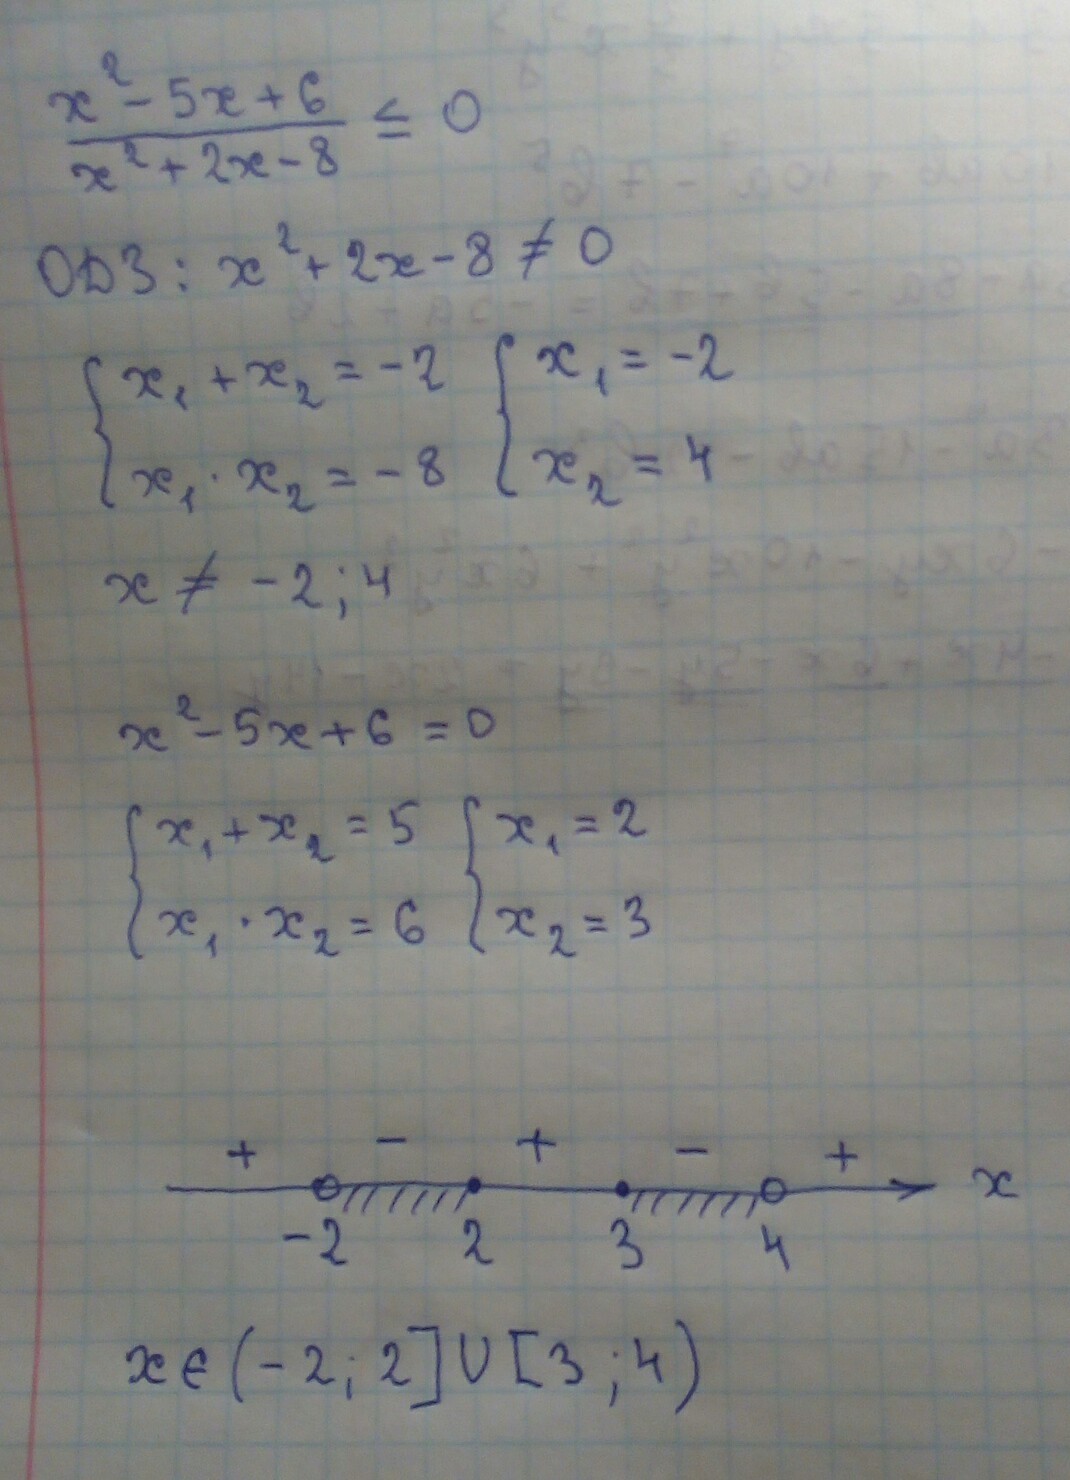 x² - 5x + 6 / x² + 2x - 8 ≤ 0
ОДЗ: x² + 2x - 8 ≠ 0
{ x₁ + x₂ = -2 { x₁ = -2
x₁ · x₂ = -8 x₂ = 4
x ≠ -2; 4
x² - 5x + 6 = 0
{ x₁ + x₂ = 5 { x₁ = 2
x₁ · x₂ = 6 x₂ = 3
+ - + - +
-2 2 3 4 x
x ∈ (-2; 2] ∪ [3; 4)